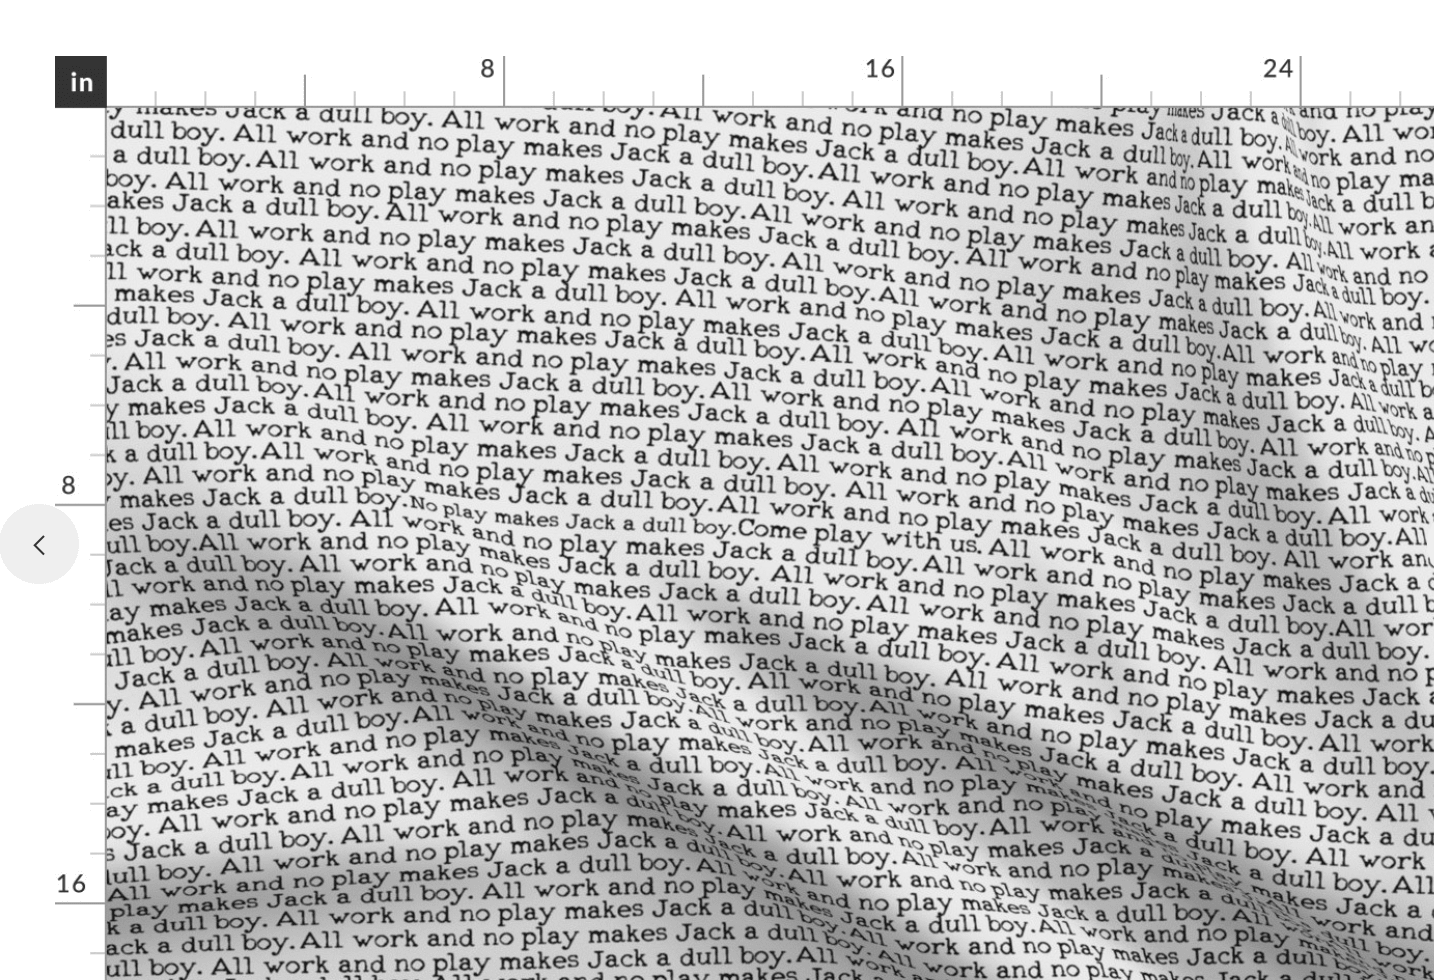 in 8 16 24
makes Jack a dull boy. All work and no play makes Jack a dull boy. All work and no play makes Jack a dull boy.
dull boy. All work and no play makes Jack a dull boy. All work and no play makes Jack a dull boy.
a dull boy. All work and no play makes Jack a dull boy. All work and no play makes Jack a dull boy.
boy. All work and no play makes Jack a dull boy. All work and no play makes Jack a dull boy.
akes Jack a dull boy. All work and no play makes Jack a dull boy. All work and no play makes Jack a dull boy.
ll boy. All work and no play makes Jack a dull boy. All work and no play makes Jack a dull boy.
ack a dull boy. All work and no play makes Jack a dull boy. All work and no play makes Jack a dull boy.
ll work and no play makes Jack a dull boy. All work and no play makes Jack a dull boy.
makes Jack a dull boy. All work and no play makes Jack a dull boy. All work and no play makes Jack a dull boy.
dull boy. All work and no play makes Jack a dull boy. All work and no play makes Jack a dull boy.
es Jack a dull boy. All work and no play makes Jack a dull boy. All work and no play makes Jack a dull boy.
. All work and no play makes Jack a dull boy. All work and no play makes Jack a dull boy.
Jack a dull boy. All work and no play makes Jack a dull boy. All work and no play makes Jack a dull boy.
y makes Jack a dull boy. All work and no play makes Jack a dull boy. All work and no play makes Jack a dull boy.
ll boy. All work and no play makes Jack a dull boy. All work and no play makes Jack a dull boy.
k a dull boy. All work and no play makes Jack a dull boy. All work and no play makes Jack a dull boy.
8
y. All work and no play makes Jack a dull boy. All work and no play makes Jack a dull boy.
makes Jack a dull boy. No play makes Jack a dull boy. Come play with us. All work and no play makes Jack a
es Jack a dull boy. All work and no play makes Jack a dull boy. All work and no play makes Jack a dull boy.
ull boy. All work and no play makes Jack a dull boy. All work and no play makes Jack a dull boy.
Jack a dull boy. All work and no play makes Jack a dull boy. All work and no play makes Jack a dull boy.
ll work and no play makes Jack a dull boy. All work and no play makes Jack a dull boy.
ay makes Jack a dull boy. All work and no play makes Jack a dull boy. All work and no play makes Jack
makes Jack a dull boy. All work and no play makes Jack a dull boy. All work and no play makes Jack a dull boy.
ull boy. All work and no play makes Jack a dull boy. All work and no play makes Jack a dull boy.
Jack a dull boy. All work and no play makes Jack a dull boy. All work and no play makes Jack a dull boy.
y. All work and no play makes Jack a dull boy. All work and no play makes Jack a dull boy.
a dull boy. All work and no play makes Jack a dull boy. All work and no play makes
makes Jack a dull boy. All work and no play makes Jack a dull boy. All work and no play makes Jack
ll boy. All work and no play makes Jack a dull boy. All work and no play makes Jack a
ck a dull boy. All work and no play makes Jack a dull boy. All work and no play makes
ay makes Jack a dull boy. All work and no play makes Jack a dull boy. All work and no play
oy. All work and no play makes Jack a dull boy. All work and no play makes Jack a dull
s Jack a dull boy. All work and no play makes Jack a dull boy. All work and no play makes Jack a
16
ull boy. All work and no play makes Jack a dull boy. All work and no play makes
All work and no play makes Jack a dull boy. All work and no play makes Jack a dull boy.
play makes Jack a dull boy. All work and no play makes Jack a dull boy. All work
k a dull boy. All work and no play makes Jack a dull boy.
ack a dull boy. All work and no play makes Jack a dull boy.
ull boy. All work and no play makes Jack a dull boy. All work